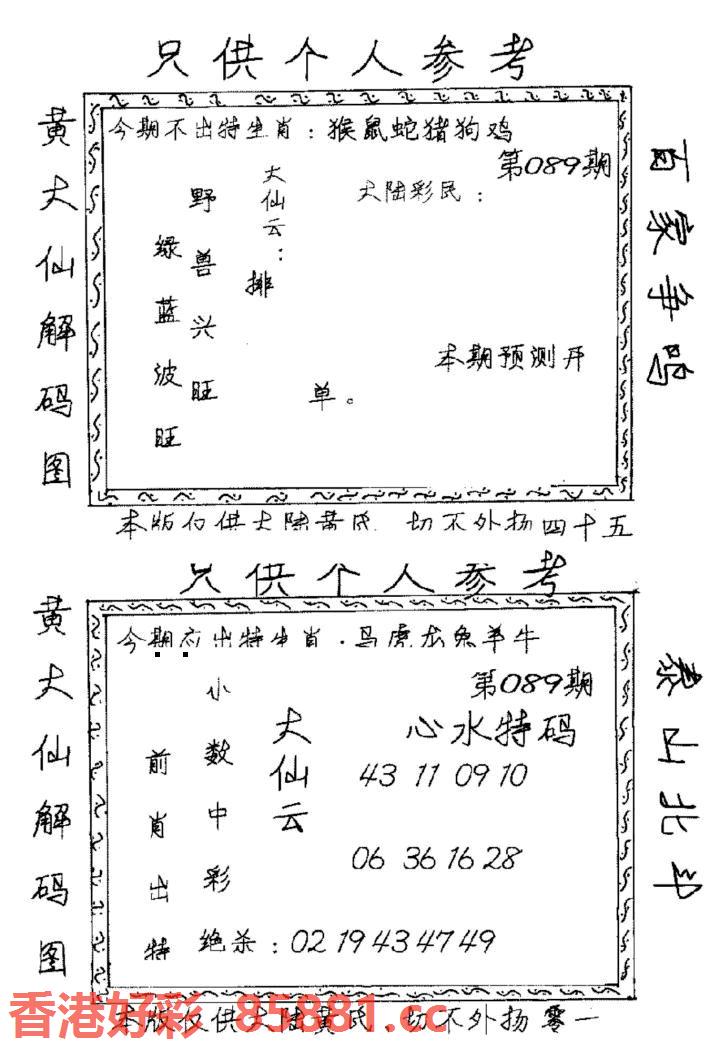 只供个人参考
黄大仙解码图
今期不出特生肖：猴鼠蛇猪狗鸡
第089期
大陆彩民：
大仙云：
排
野兽兴旺
绿蓝波旺
单。
本期预测开
百家争鸣
本版仅供大陆黄民 切不外扬四十五
只供个人参考
黄大仙解码图
今期应出特生肖．马虎龙兔羊牛
第089期
心水特码
43 11 09 10
06 36 16 28
大仙云
小数中彩
前肖出特
绝杀：02 19 43 47 49
泰山北斗
本版仅供大陆黄民．切不外扬零一
香港好彩 85881.cc